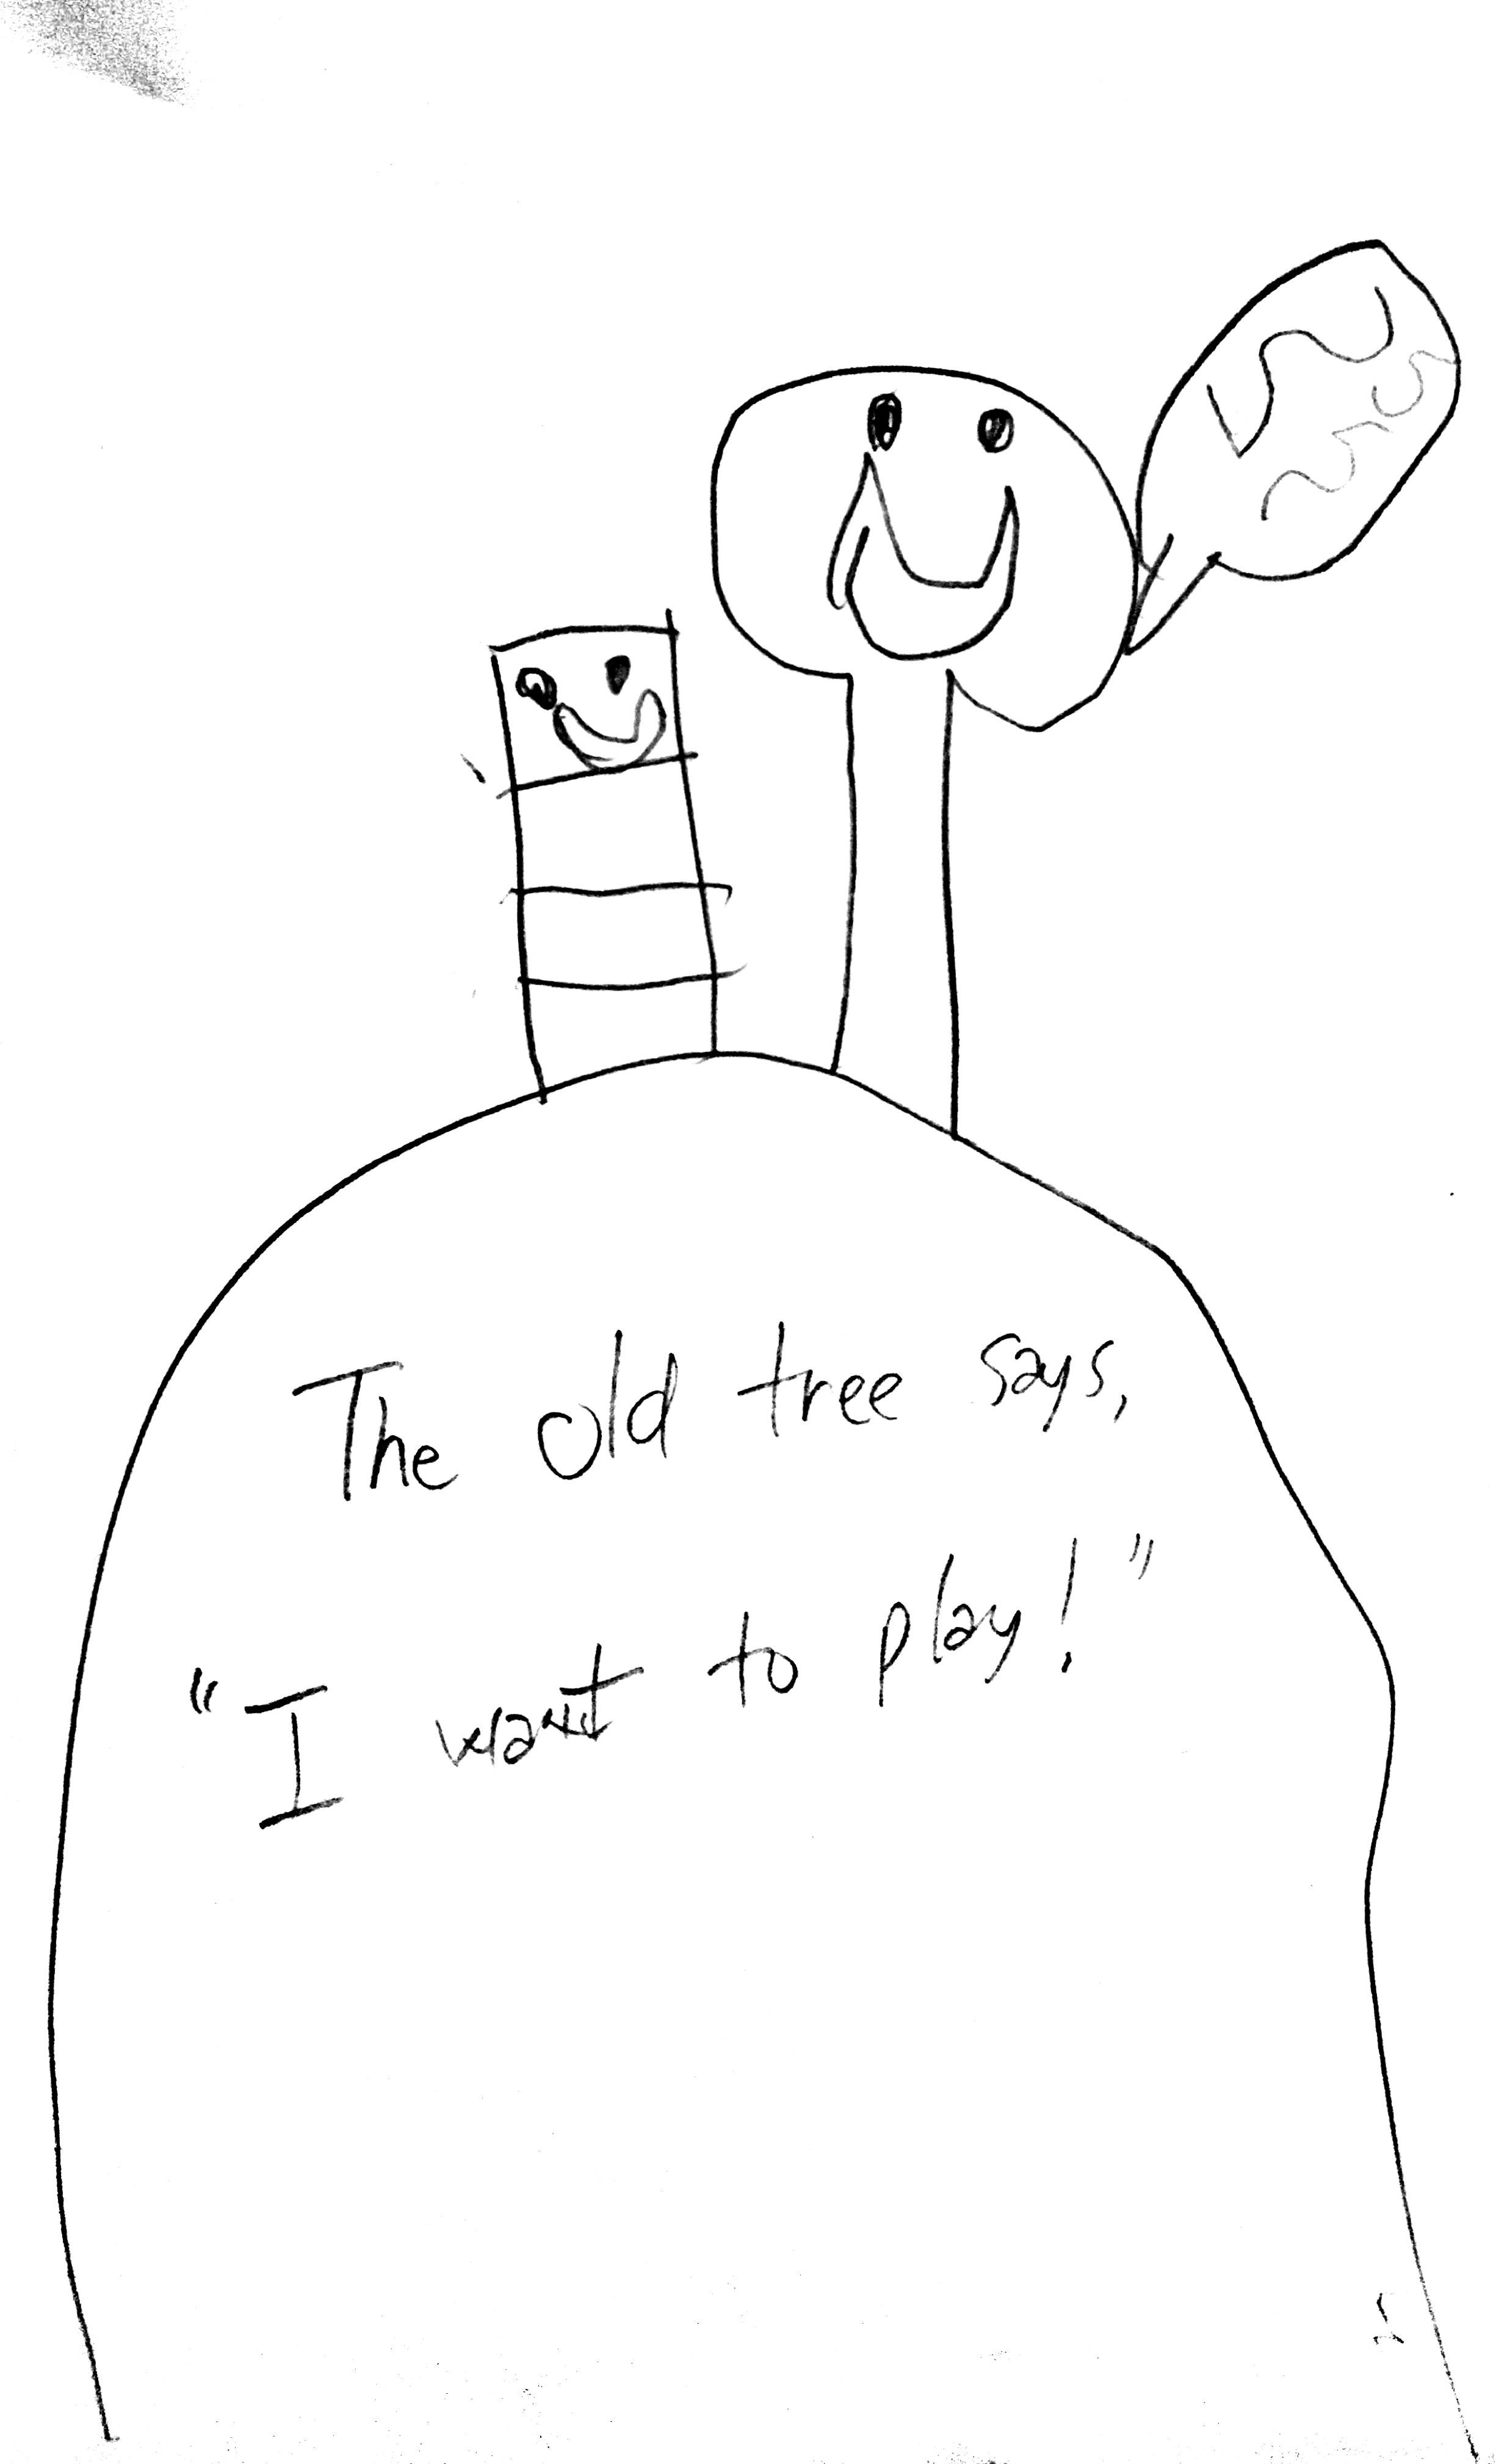 The old tree says,
"I want to play!"